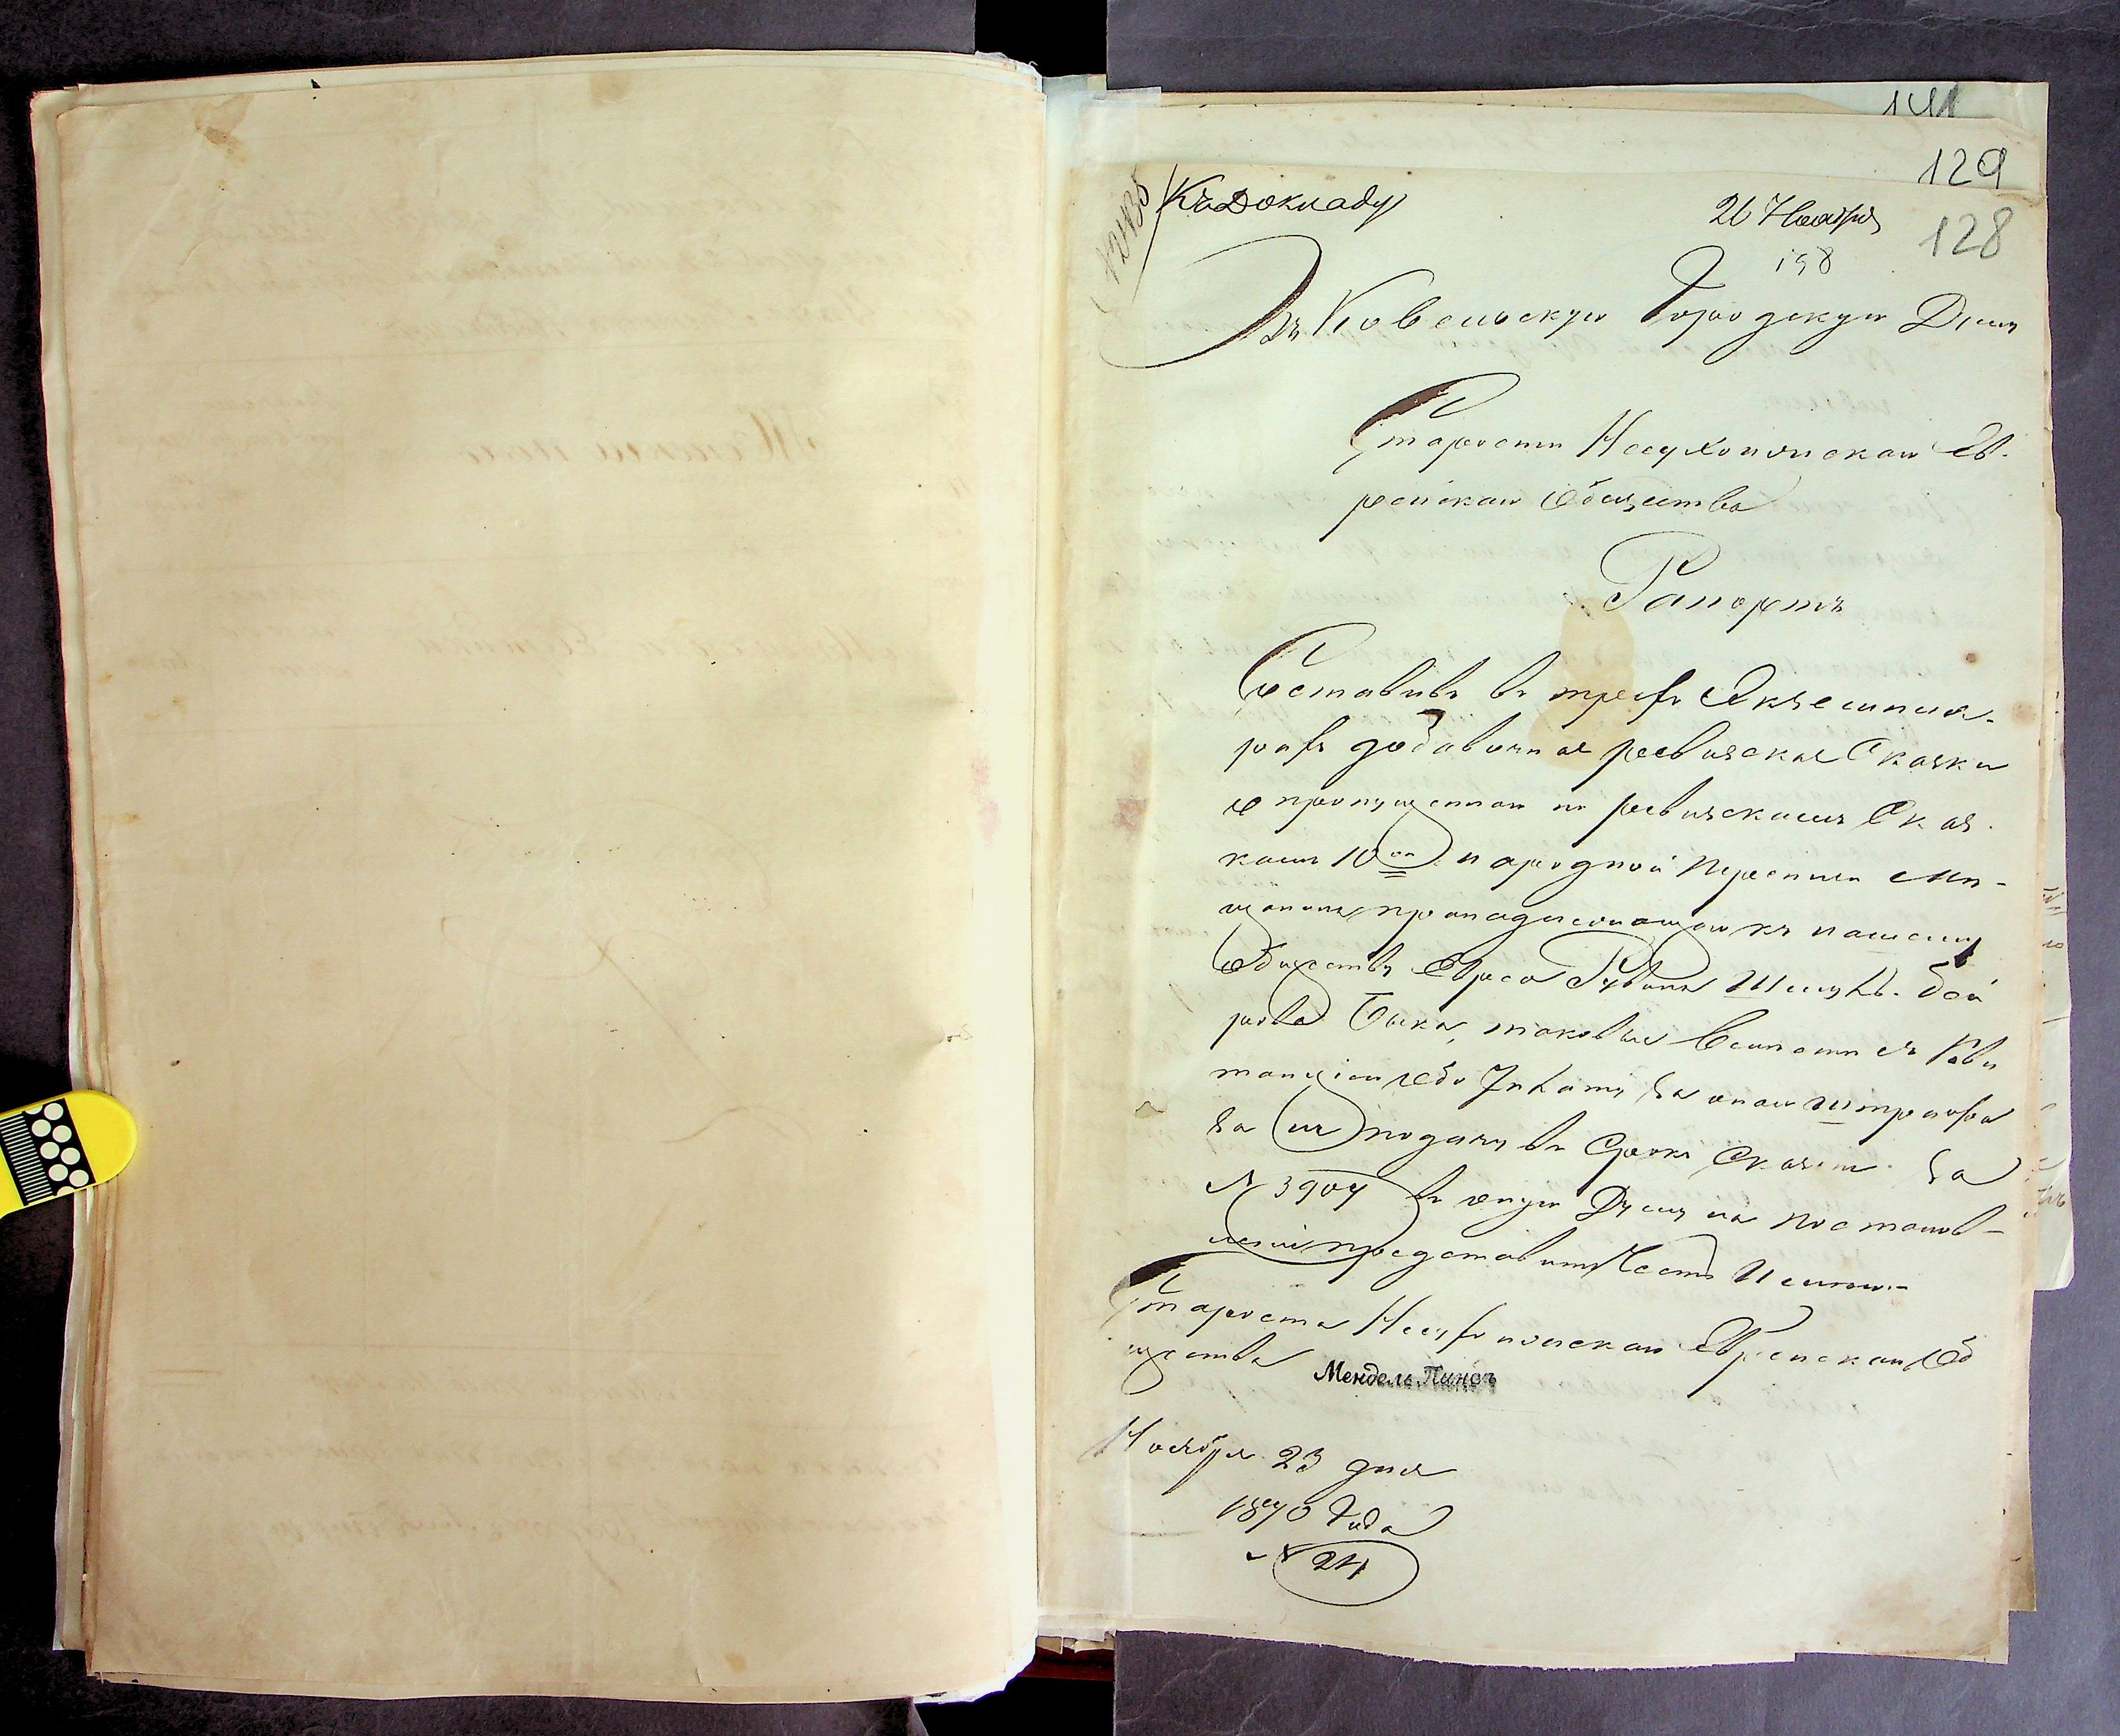 141
129
128
Къ Докладу
26 Ноября
198
Въ Ковельскую Городскую Думу
Старосты Несухоижскаго Ев-
рейскаго Общества
Рапортъ
Составивъ въ трехъ Экземпля-
рахъ добавочныя ревизския Сказки
о пропущеннаго по ревизскимъ Сказ-
камъ 10ой народной переписи Мѣ-
щанина принадлежащаго къ нашему
Обществу Еврея Рувина
Быка, таковые вместе съ Кви
танціею объ за онаго штрафа
за не подачу въ Срокъ Сказки За
№ 3904 въ оную Думу на постанов-
ленія представить Честь Имѣю.
Староста Несухоижскаго Еврейскаго Об
щества Мендель Пинсъ
Ноября 23 дня
1870 Года
№ 24